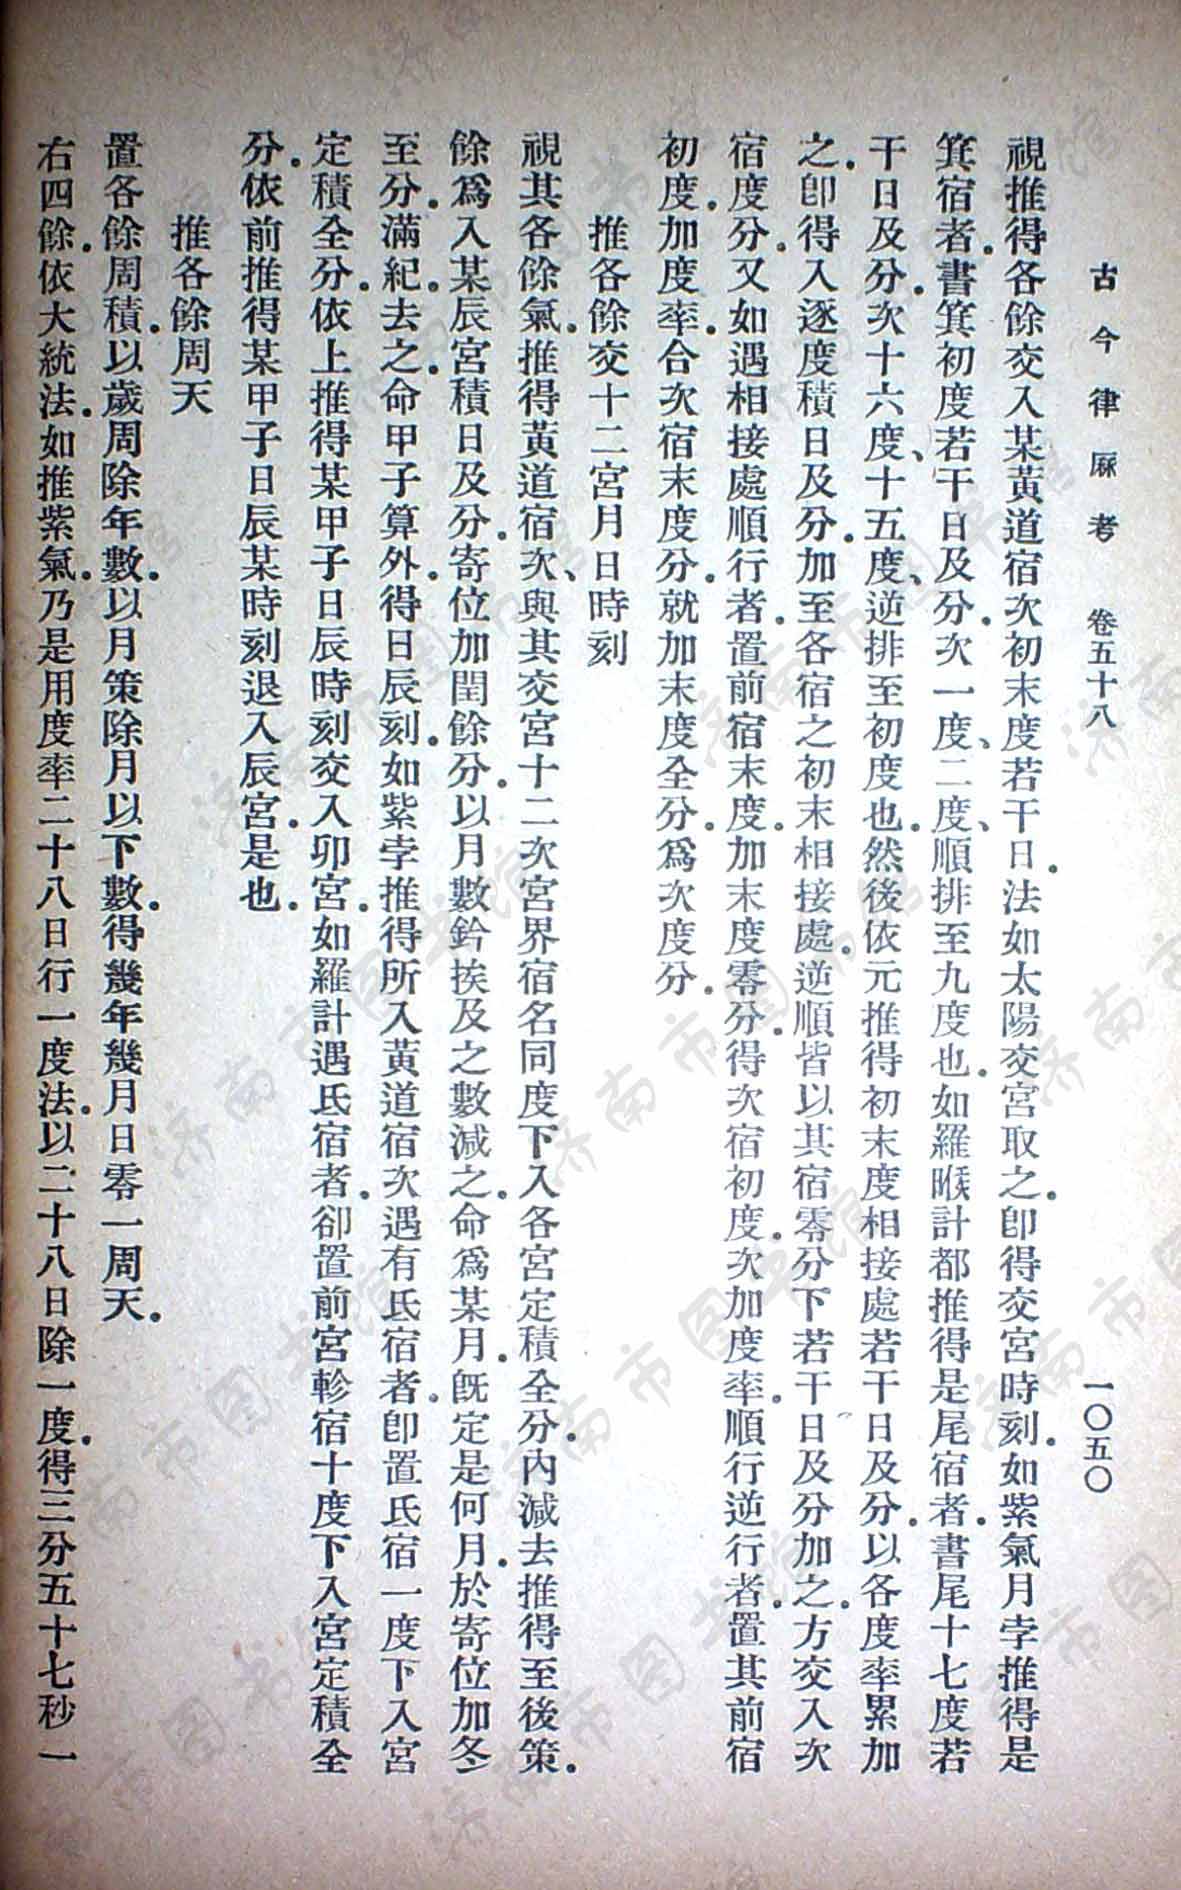 古今律厤考 卷五十八 一〇五〇
視推得各餘交入某黃道宿次初末度若干日。法如太陽交宮取之。卽得交宮時刻。如紫氣月孛推得是
箕宿者。書箕初度若干日及分。次一度、二度、順排至九度也。如羅㬋計都推得是尾宿者。書尾十七度若
干日及分。次十六度、十五度、逆排至初度也。然後依元推得初末度相接處若干日及分。以各度率累加
之。卽得入逐度積日及分。加至各宿之初末相接處。逆順皆以其宿零分下若干日及分加之。方交入次
宿度分。又如遇相接處順行者。置前宿末度。加末度零分。得次宿初度。次加度率。順行逆行者。置其前宿
初度。加度率。合次宿末度分。就加末度全分。爲次度分。
推各餘交十二宮月日時刻
視其各餘氣。推得黃道宿次、與其交宮十二次宮界宿名同度下入各宮定積全分。內減去推得至後策。
餘爲入某辰宮積日及分。寄位加閏餘分。以月數鈐挨及之數減之。命爲某月。旣定是何月。於寄位加冬
至分。滿紀。去之。命甲子算外。得日辰刻。如紫孛推得所入黃道宿次遇有氐宿者。卽置氐宿一度下入宮
定積全分。依上推得某甲子日辰時刻交入卯宮。如羅計遇氐宿者。卻置前宮軫宿十度下入宮定積全
分。依前推得某甲子日辰某時刻退入辰宮。是也。
推各餘周天
置各餘周積。以歲周除年數。以月策除月以下數。得幾年幾月日零一周天。
右四餘。依大統法。如推紫氣。乃是用度率二十八日行一度法。以二十八日除一度。得三分五十七秒一